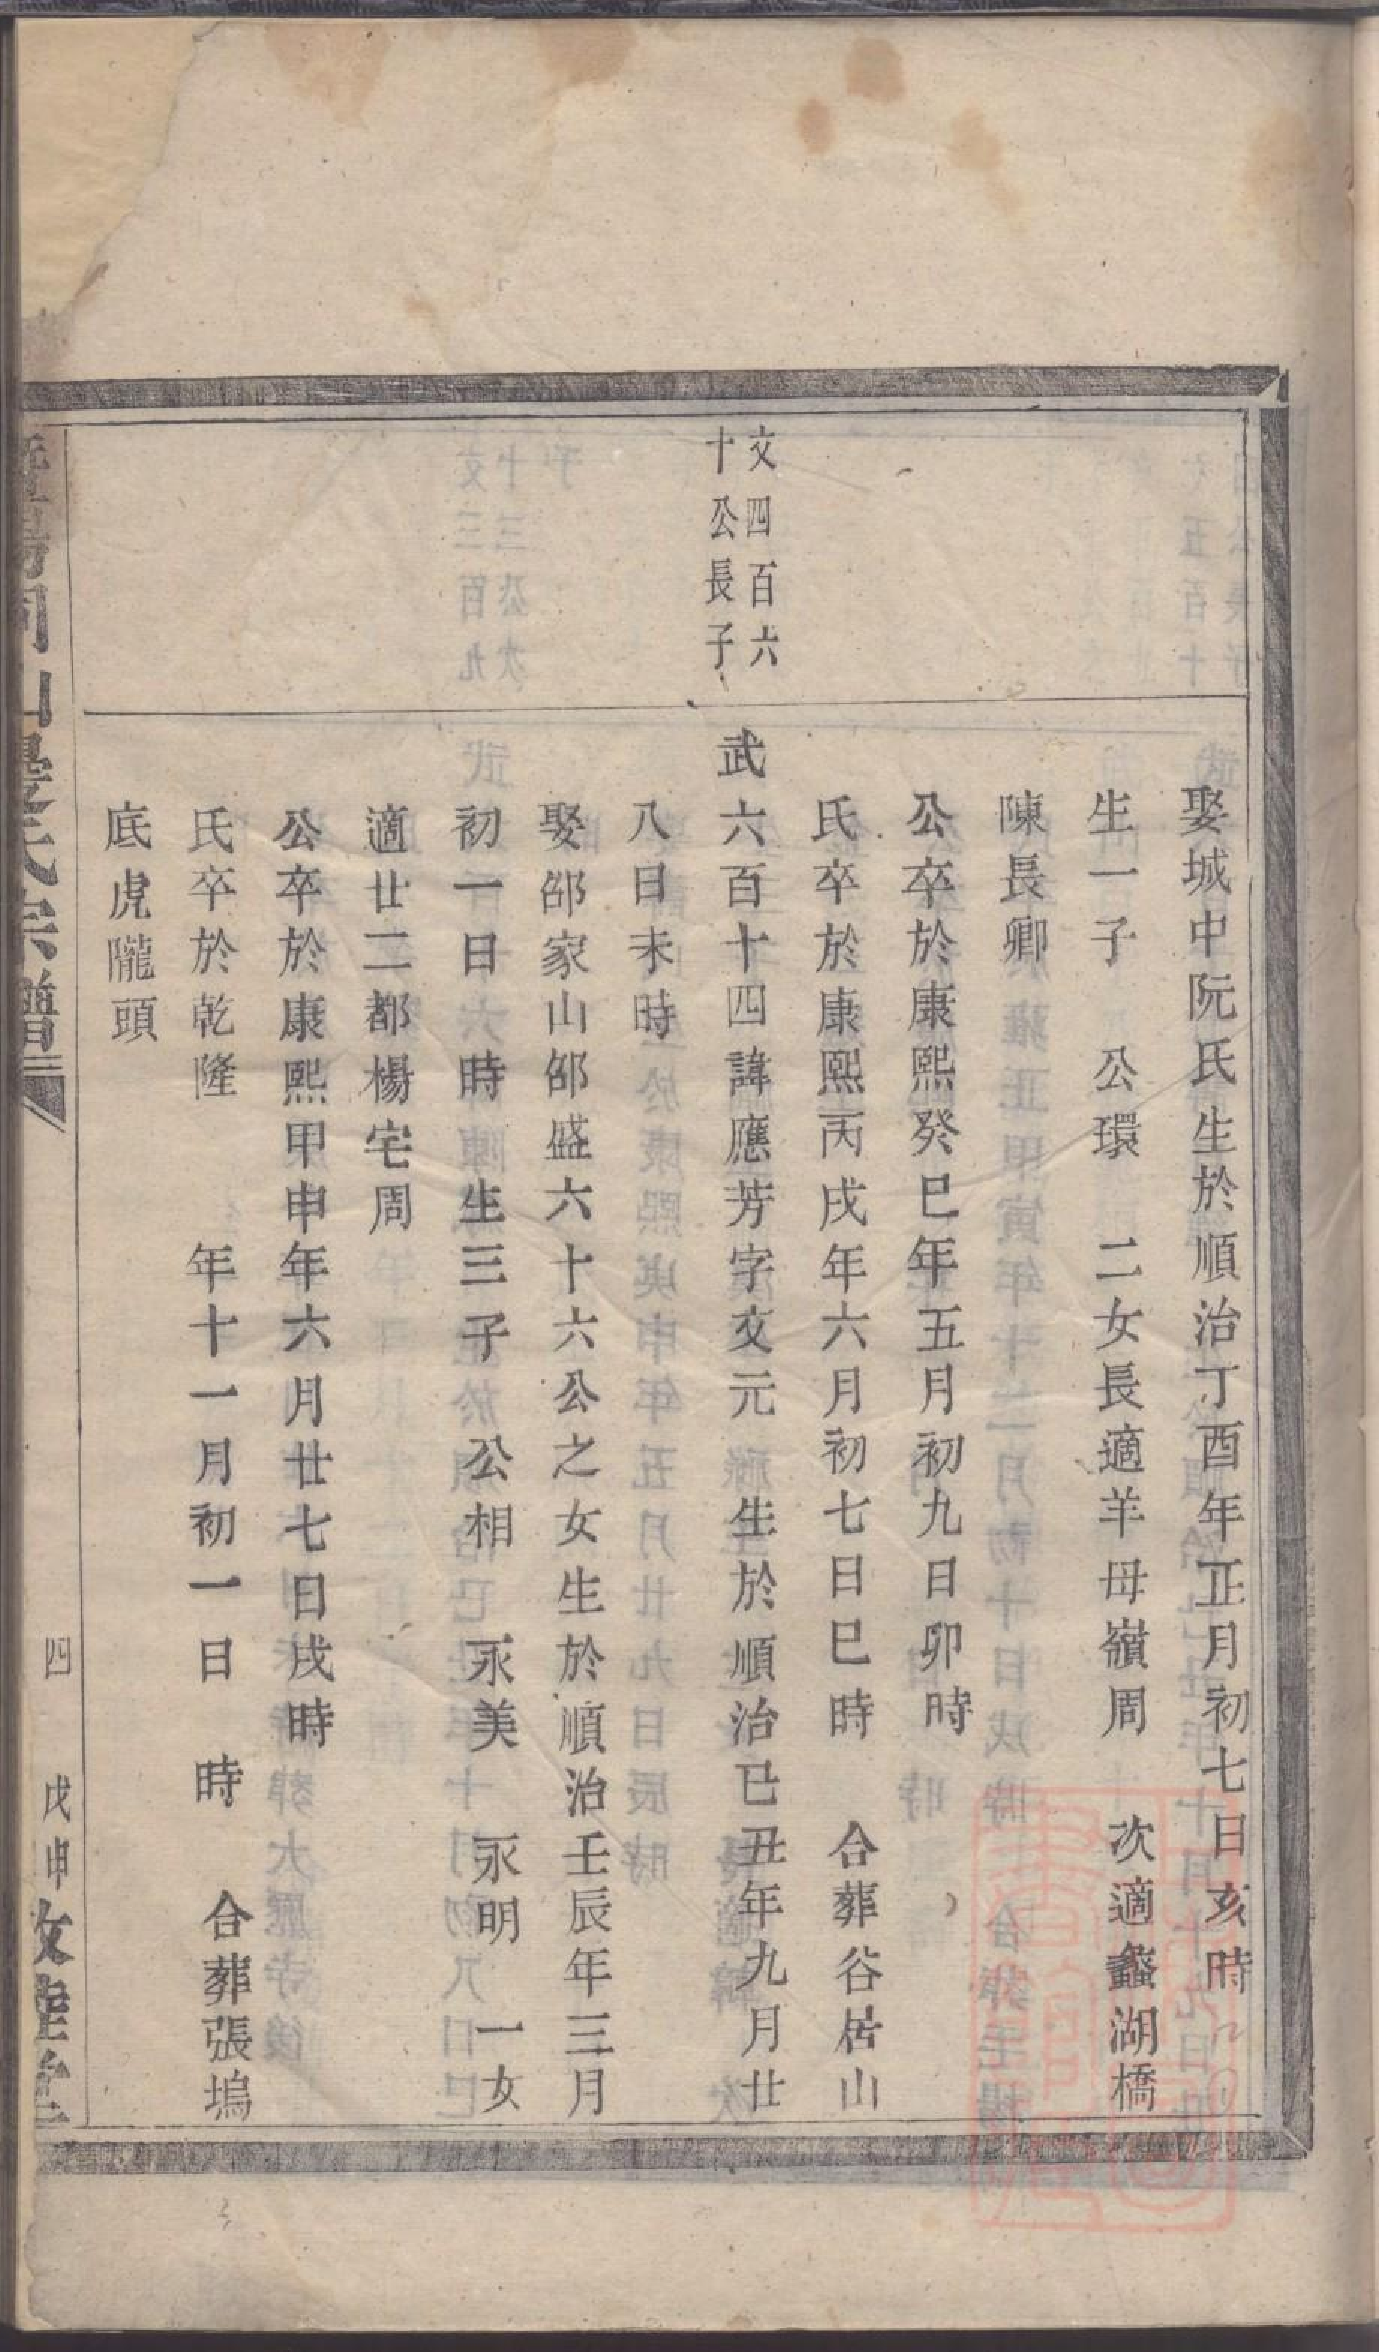 娶城中阮氏生於順治丁酉年正月初七日亥時
生一子　公環　二女長適羊毋嶺周　次適蠡湖橋
陳長卿
公卒於康熙癸巳年五月初九日卯時
氏卒於康熙丙戌年六月初七日巳時　合葬谷居山
文四百六
十公長子
武六百十四諱應芳字文元　生於順治已丑年九月廿
八日未時
娶邵家山邵盛六十六公之女生於順治壬辰年三月
初一日　時　生三子　公相　永美　永明　一女
適廿二都楊宅周
公卒於康熙甲申年六月廿七日戌時
氏卒於乾隆　年十一月初一日　時　合葬張塢
底虎隴頭
同山
氏宗譜
四
戊申